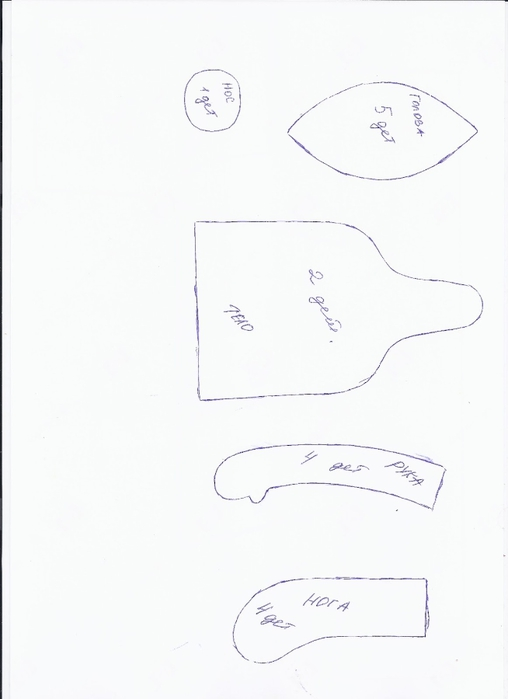 НОС
1 дет
ГОЛОВА
5 дет
2 дет.
ТЕЛО
4 дет РУКА
НОГА
4 дет